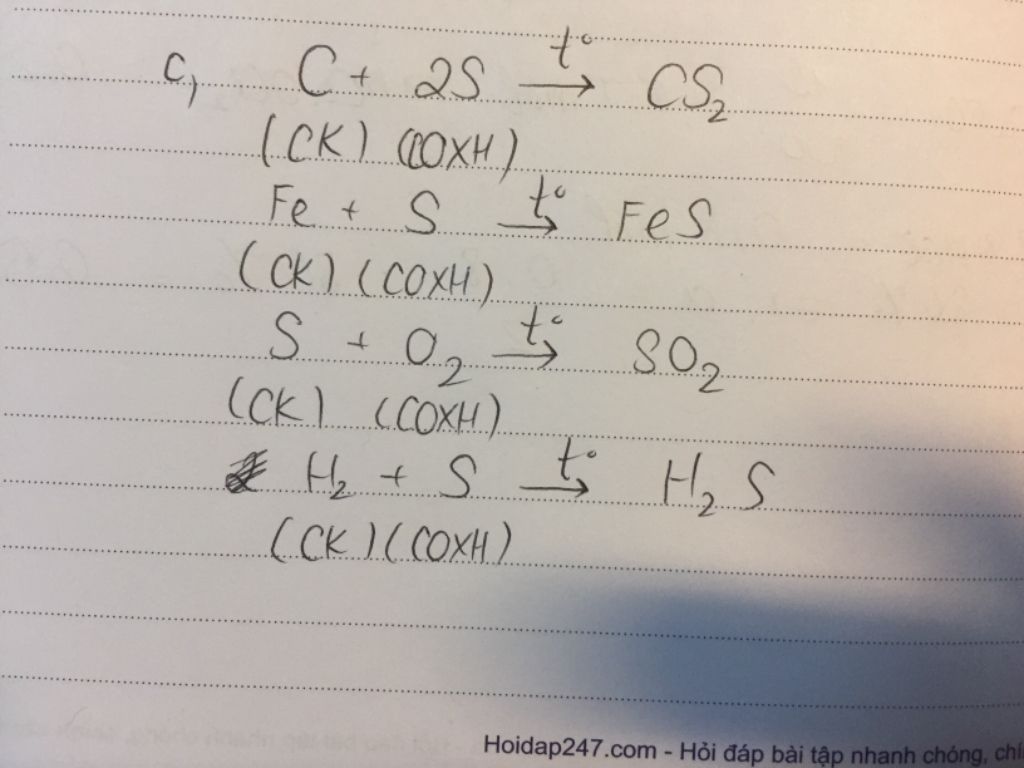 c, C + 2S t° → CS₂
(CK) (COXH)
Fe + S t° → FeS
(CK) (COXH)
S + O₂ t° → SO₂
(CK) (COXH)
H₂ + S t° → H₂S
(CK) (COXH)
Hoidap247.com - Hỏi đáp bài tập nhanh chóng, chí